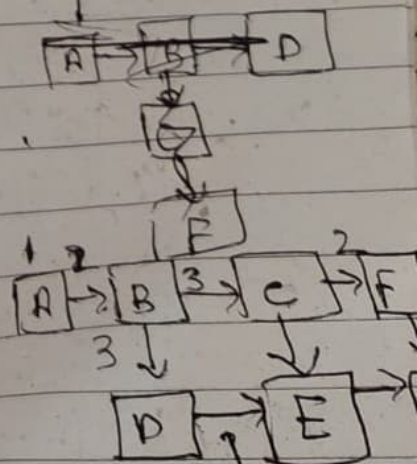 A B D
F
1 2 3 2
A B C F
3
D E